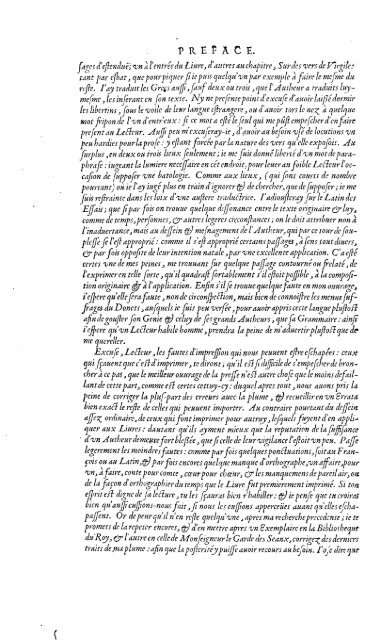 PREFACE.
sages d'estenduë; vn à l'entrée du Liure, d'autres au chapitre, Sur des vers de Virgile:
tant par esbat, que pour piquer si ie puis quelqu'vn par exemple à faire le mesme du
reste. I'ay traduit les Grecs aussi, sauf deux ou trois, que l'Autheur a traduits luy-
mesme, les inserant en son texte. Ny me presente point d'excuse d'auoir laissé dormir
les libertins, sous le voile de leur langue estrangere, ou d'auoir tors le nez à quelque
mot fripon de l'vn d'entr'eux: si ce mot a esté le seul qui me pûst empescher d'en faire
present au Lecteur. Aussi peu m'excuseray-ie, d'auoir au besoin vsé de locutions vn
peu hardies pour la prose: y estant forcée par la nature des vers qu'elle exposoit. Au
surplus, en deux ou trois lieux seulement; ie me suis donné liberté d'vn mot de para-
phrase: iugeant la lumiere necessaire en cét endroit, pour leuer au foible Lecteur l'oc-
casion de supposer vne batologie. Comme aux lieux, (qui sont cours de nombre
pourtant) où ie l'ay iugé plus en train d'ignorer & de chercher, que de supposer; ie me
suis restrainte dans les loix d'vne austere traductrice. I'adiousteray sur le Latin des
Essais; que si par fois on trouue quelque dissonance entre le texte originaire & luy,
comme de temps, personnes, & autres legeres circonstances; on le doit attribuer non à
l'inaduertance, mais au dessein & mesnagement de l'Autheur, qui par ce tour de sou-
plesse se l'est approprié: comme il s'est approprié certains passages, à sens tout diuers,
& par fou opposites de leur intention natale, par vne excellente application. C'a esté
certes vne de mes peines, me trouuant sur quelque passage contourné ou forlaté, de
l'exprimer en telle sorte, qu'il quadrast sortablement s'il estoit possible, à la composi-
tion originaire & à l'application. Enfin s'il se trouue quelque faute en mon ouurage,
i'espere qu'elle sera faute, non de circonspection, mais bien de connoistre les menus suf-
frages du Donets, ausquels ie suis peu versée, pour auoir appris ceste langue plustost
afin de gouster son Genie & celuy de ses grands Autheurs, que sa Grammaire: ainsi
i'espere qu'vn Lecteur habile homme, prendra la peine de m'aduertir plustost que de
me quereller.
Excuse, Lecteur, les fautes d'impression qui nous peuuent estre eschapées: ceux
qui sçauent que c'est d'imprimer, te diront; qu'il est si difficile de s'empescher de bron-
cher à ce pas, que le meilleur ouurage de la presse n'est autre chose que le moins defail-
lant de cette part, comme est certes cettuy-cy: duquel apres tout, nous auons pris la
peine de corriger la plus-part des erreurs auec la plume, & recueillir en vn Errata
bien exact le reste de celles qui peuuent importer. Au contraire pourtant du dessein
assez ordinaire, de ceux qui font imprimer pour autruy, lesquels fuyent d'en appli-
quer aux Liures: dautant qu'ils ayment mieux que la reputation de la suffisance
d'vn Autheur demeure fort blessée, que si celle de leur vigilance l'estoit vn peu. Passe
legerement les moindres fautes: comme par fois quelques ponctuations, soit au Fran-
çois ou au Latin, & par fois encores quelque manque d'orthographe, vn affaire, pour
vn, à faire, conte pour compte, cœur pour chœur, & les manquemens de pareil air, ou
de la façon d'orthographier du temps que le Liure fut premierement imprimé. Si ton
esprit est digne de sa lecture, tu les sçauras bien r'habiller: & ie pense que tu croiras
bien qu'aussi eussions-nous fait, si nous les eussions apperceües auant qu'elles escha-
passent. Or de peur qu'il n'en reste quelqu'vne, apres ma recherche precedente; ie te
promets de la repeter encores, & d'en mettre apres vn Exemplaire en la Bibliotheque
du Roy, & l'autre en celle de Monseigneur le Garde des Seaux, corrigez des derniers
traits de ma plume: afin que la posterité y puisse auoir recours au besoin. I'ose dire que